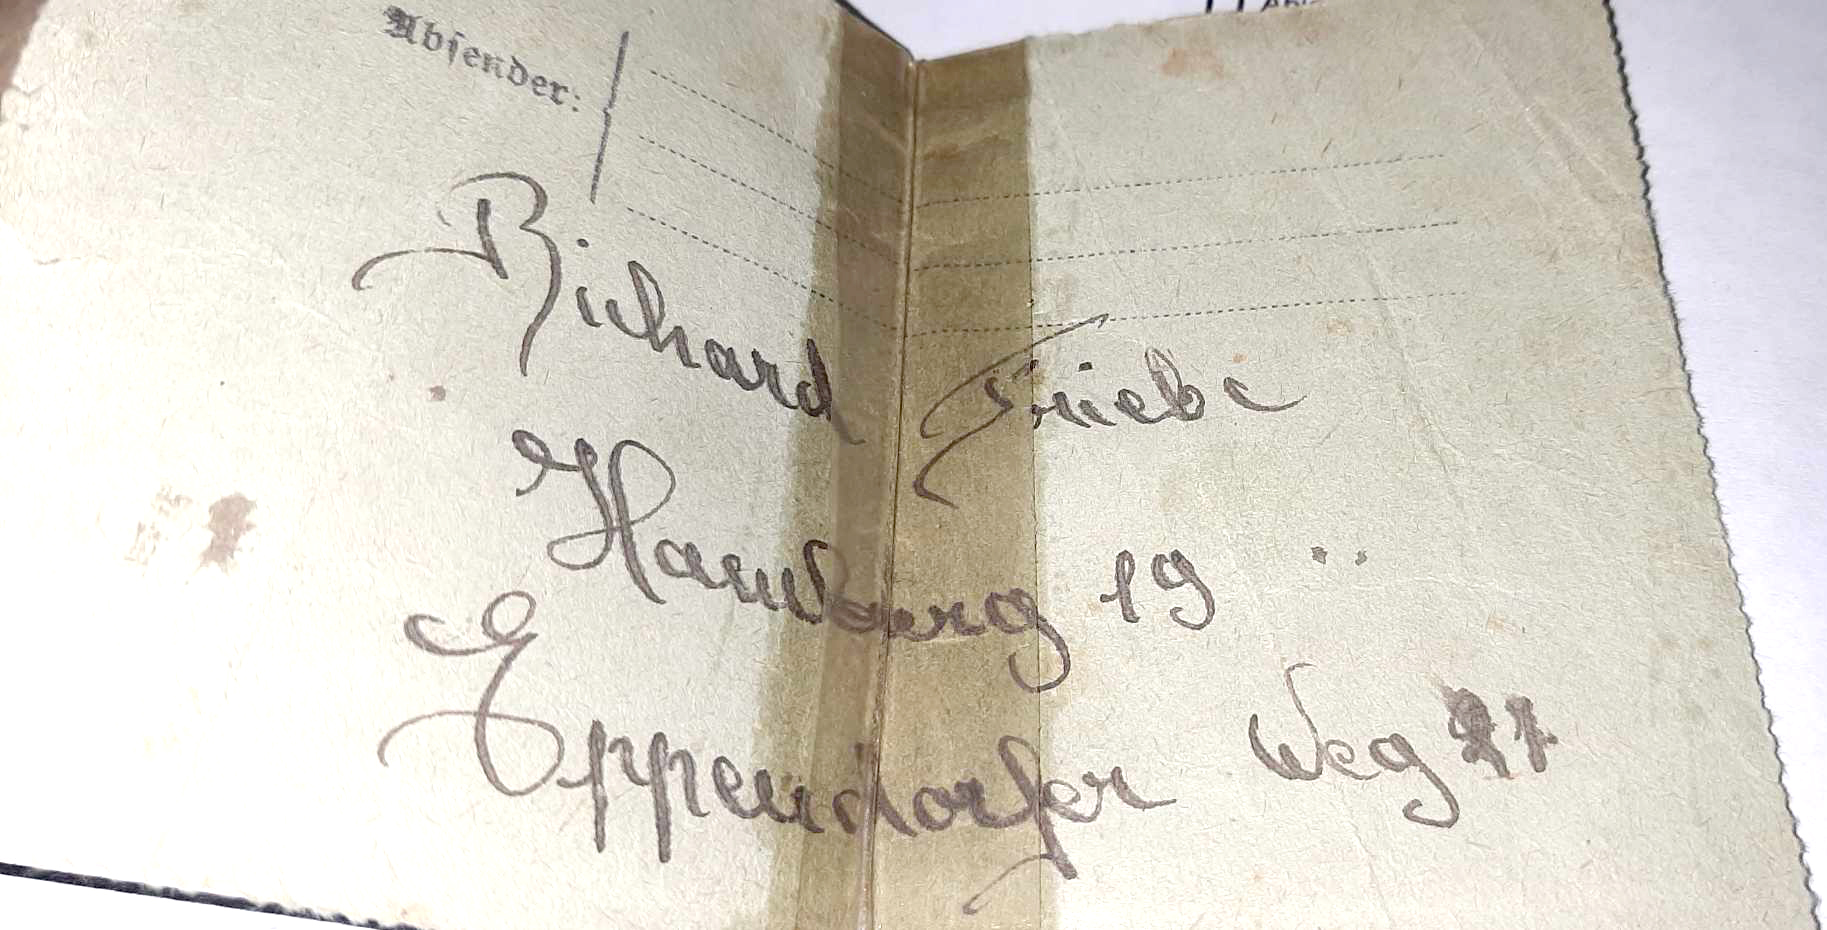 Absender:
Richard Friebe
Hamburg 19
Eppendorfer Weg